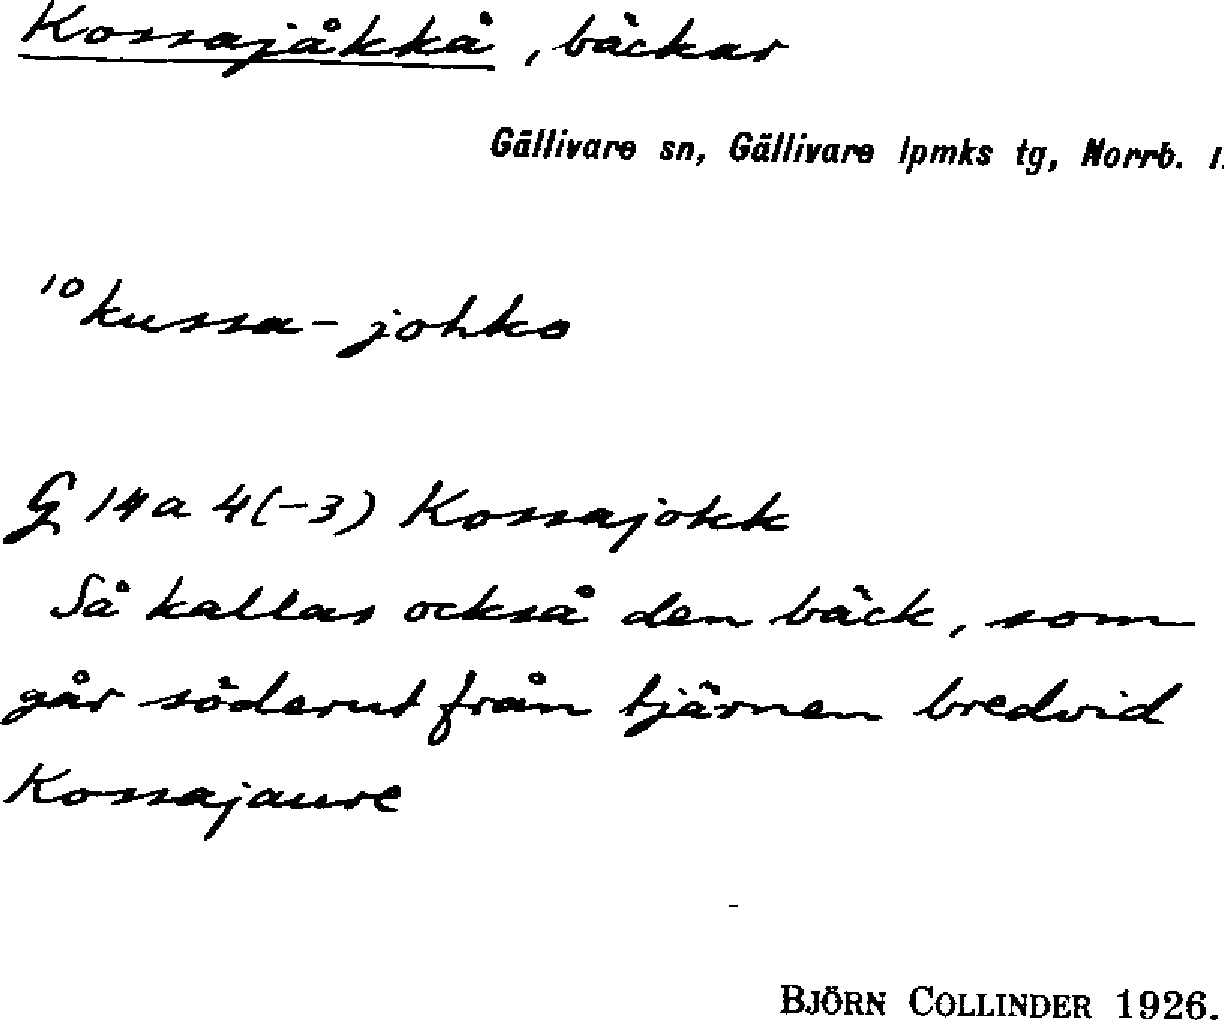 Kossajåkkå, bäckar
Gällivare sn, Gällivare lpmks tg, Norrb. l.
¹⁰kussa-johko
G 14a 4(-3) Kossajokk
Så kallas också den bäck, som
går söderut från tjärnen bredvid
Kossajaure
BJÖRN COLLINDER 1926.